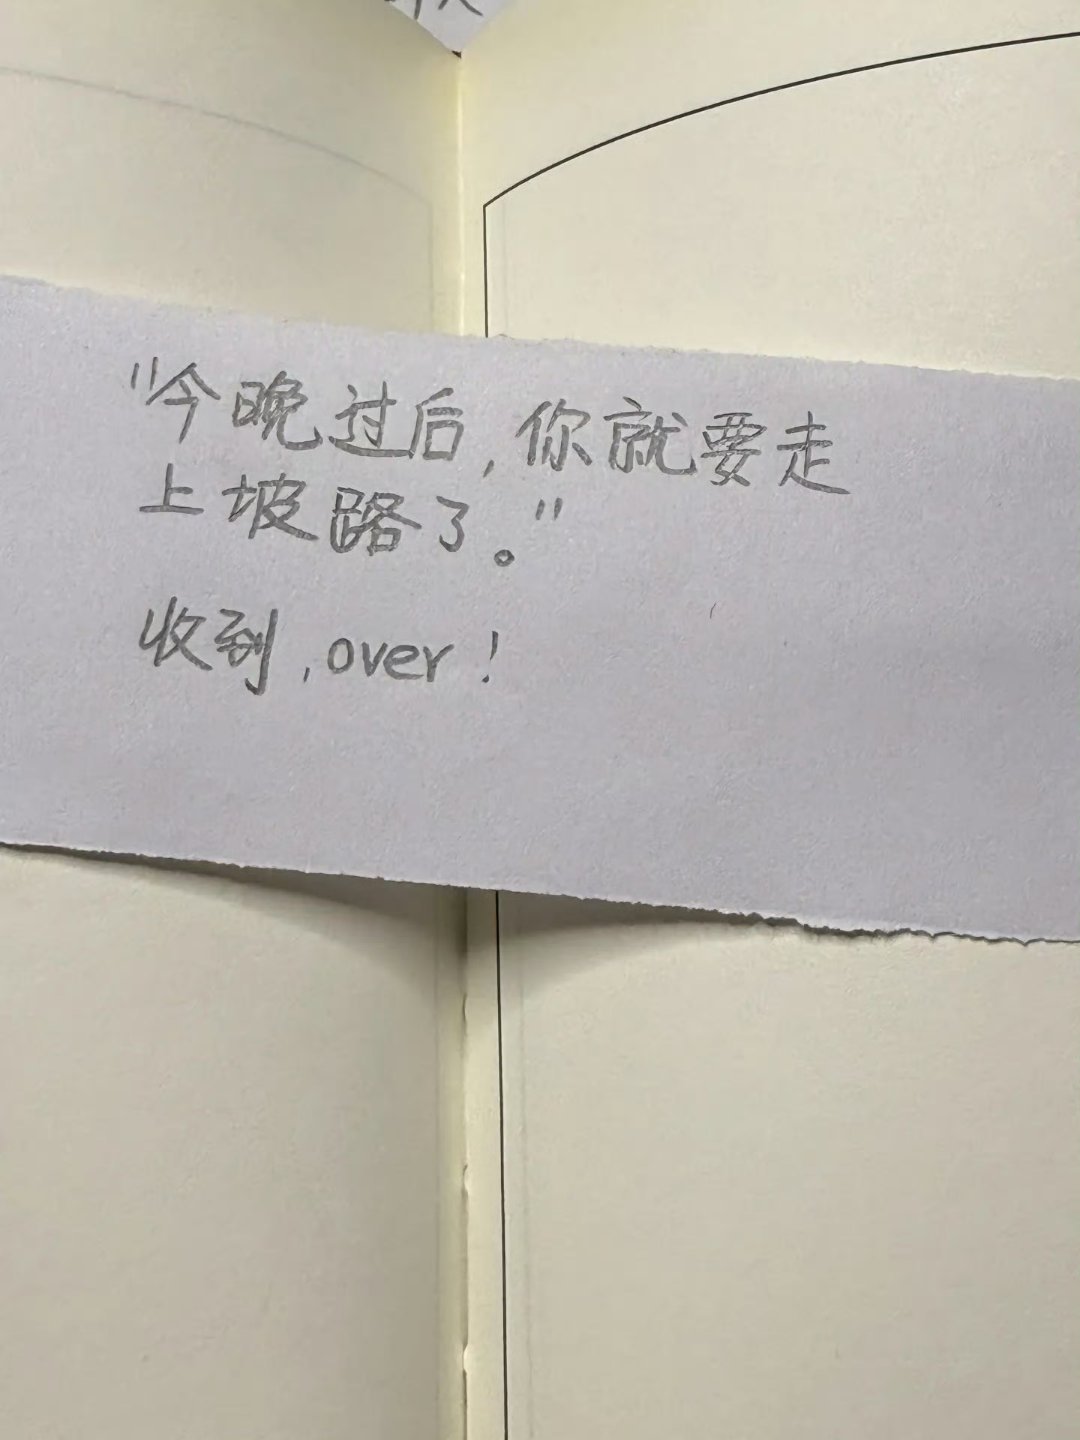 "今晚过后,你就要走
上坡路了。"
收到,over!